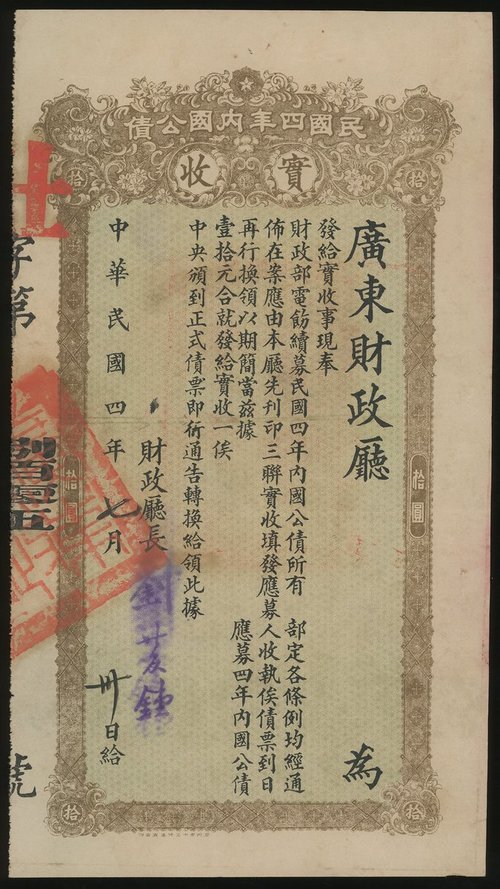 民國四年內國公債
實收
廣東財政廳 為
發給實收事現奉
財政部電飭續募民國四年內國公債所有 部定各條例均經通
佈在案應由本廳先刊印三聯實收填發應募人收執俟債票到日
再行換領以期簡當茲據 應募四年內國公債
壹拾元合就發給實收一俟
中央頒到正式債票即行通告轉換給領此據
財政廳長
中華民國四年七月卅日給
字第
號
拾
拾
拾圓
拾圓
拾
拾